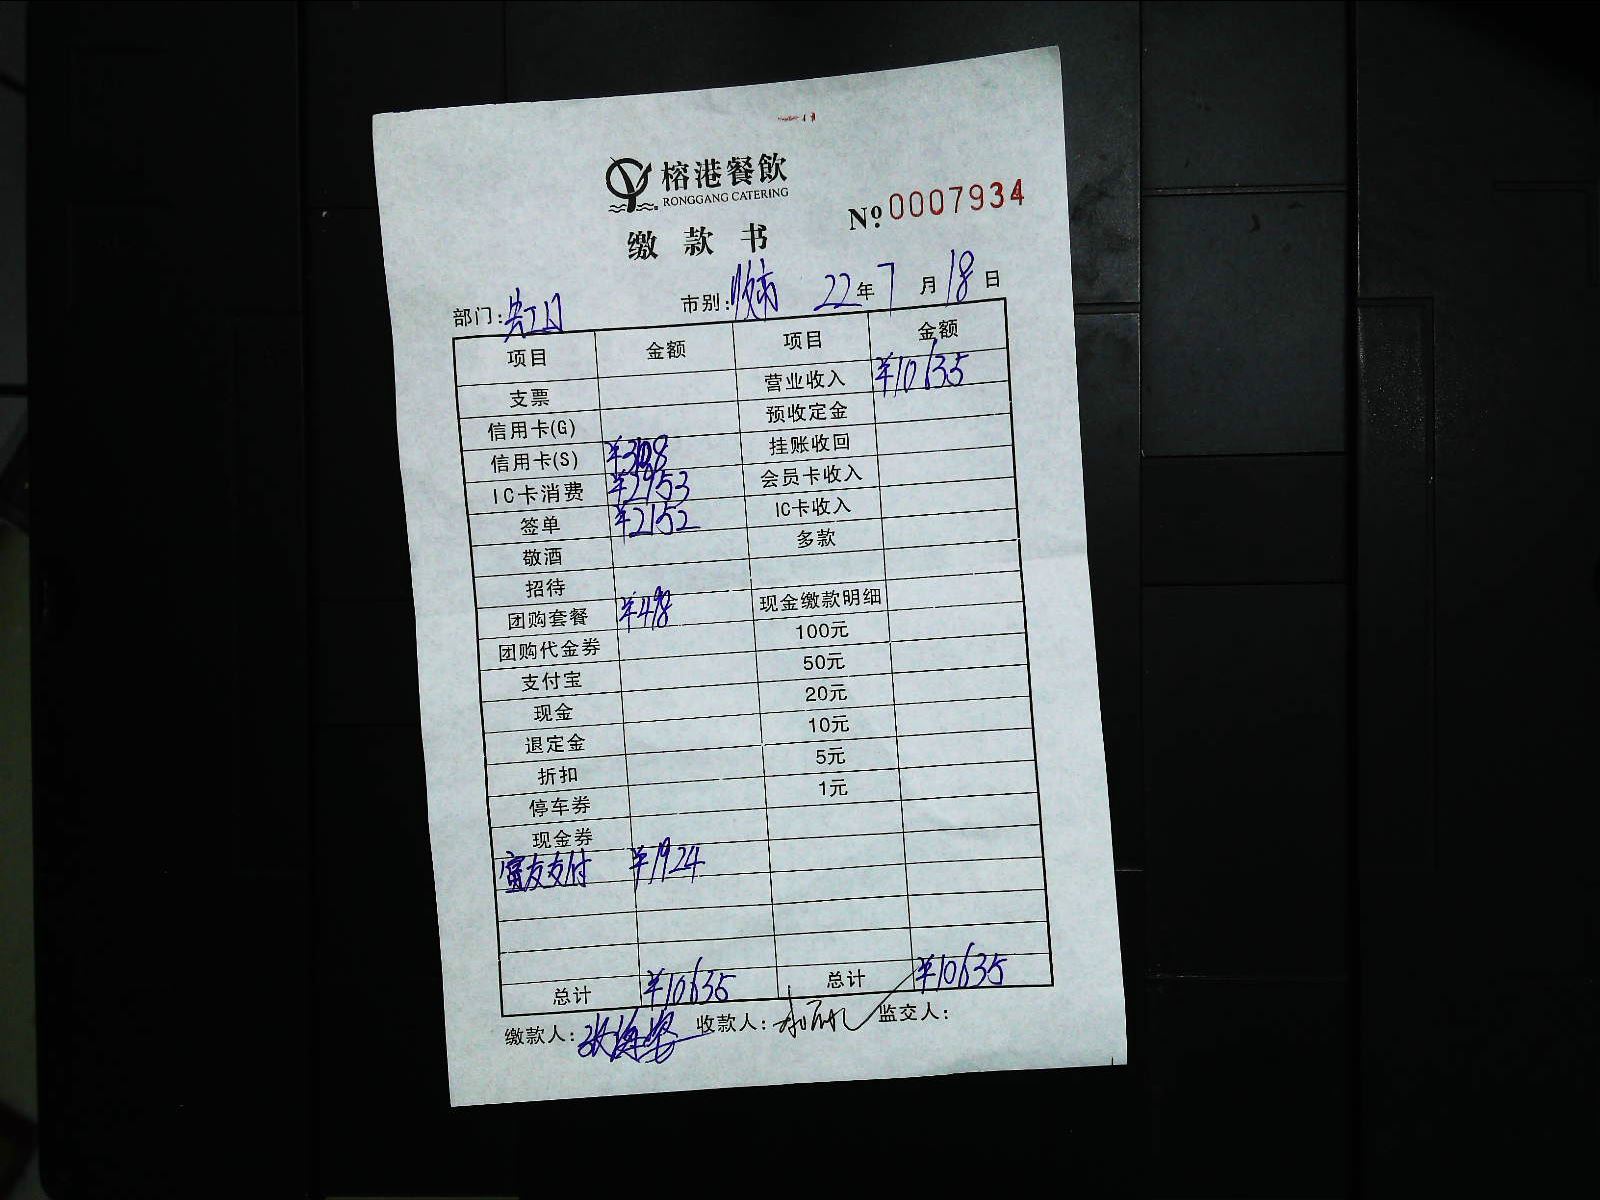 榕港餐飲
RONGGANG CATERING
缴款书
No. 0007934
部门: 市别:晚市 22年7月18日
项目 金额 项目 金额
支票 营业收入 ¥10635
信用卡(G) 预收定金
信用卡(S) ¥3108 挂账收回
IC卡消费 ¥2953 会员卡收入
签单 ¥2152 IC卡收入
敬酒 多款
招待
团购套餐 ¥498 现金缴款明细
团购代金券 100元
支付宝 50元
现金 20元
退定金 10元
折扣 5元
停车券 1元
现金券
富友支付 ¥1924
总计 ¥10635 总计 ¥10635
缴款人: 收款人: 监交人: